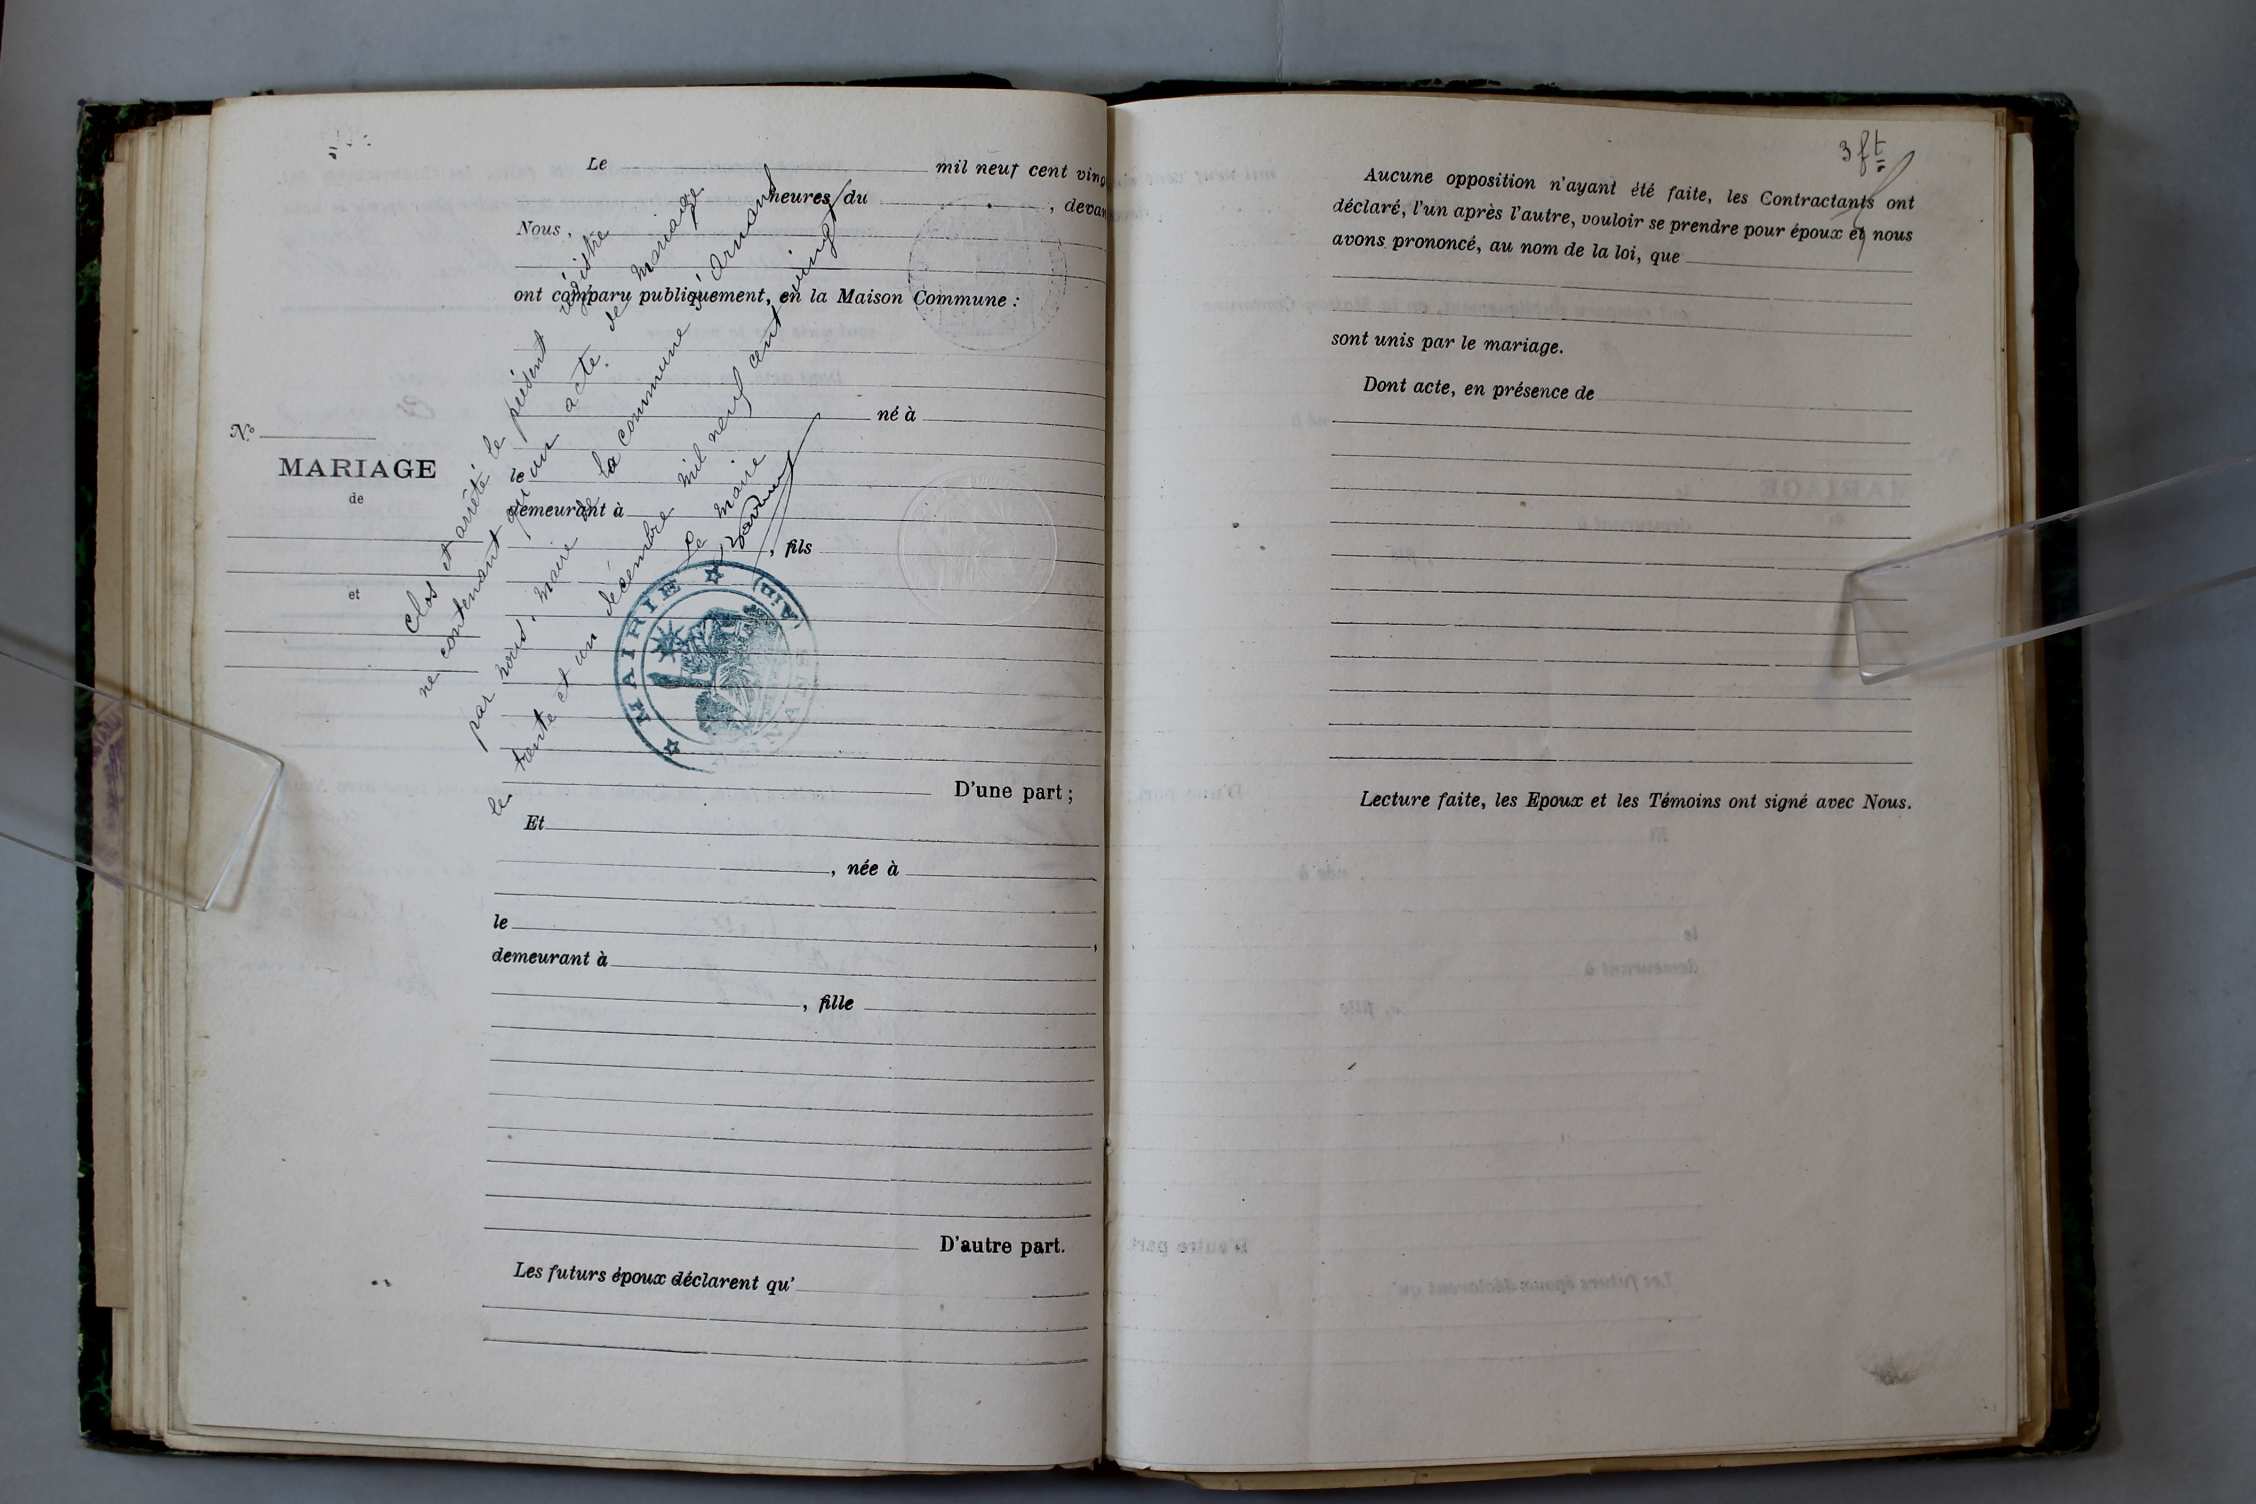 Le mil neuf cent vingt
heures du , devant
Nous,
ont comparu publiquement, en la Maison Commune :
né à
le
demeurant à
, fils
D'une part ;
Et
, née à
le ,
demeurant à
, fille
D'autre part.
Les futurs époux déclarent qu'
N°
MARIAGE
de
et
Clos et arrêté le présent régistre
ne contenant qu'un acte de mariage
par nous, maire de la commune d'Arnans
le trente et un décembre mil neuf cent vingt
Le maire
MAIRIE
(AIN)
3 ft
Aucune opposition n'ayant été faite, les Contractants ont
déclaré, l'un après l'autre, vouloir se prendre pour époux et nous
avons prononcé, au nom de la loi, que
sont unis par le mariage.
Dont acte, en présence de
Lecture faite, les Epoux et les Témoins ont signé avec Nous.